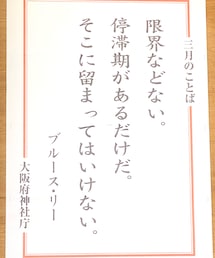 三月のことば
限界などない。
停滞期があるだけだ。
そこに留まってはいけない。
ブルース・リー
大阪府神社庁